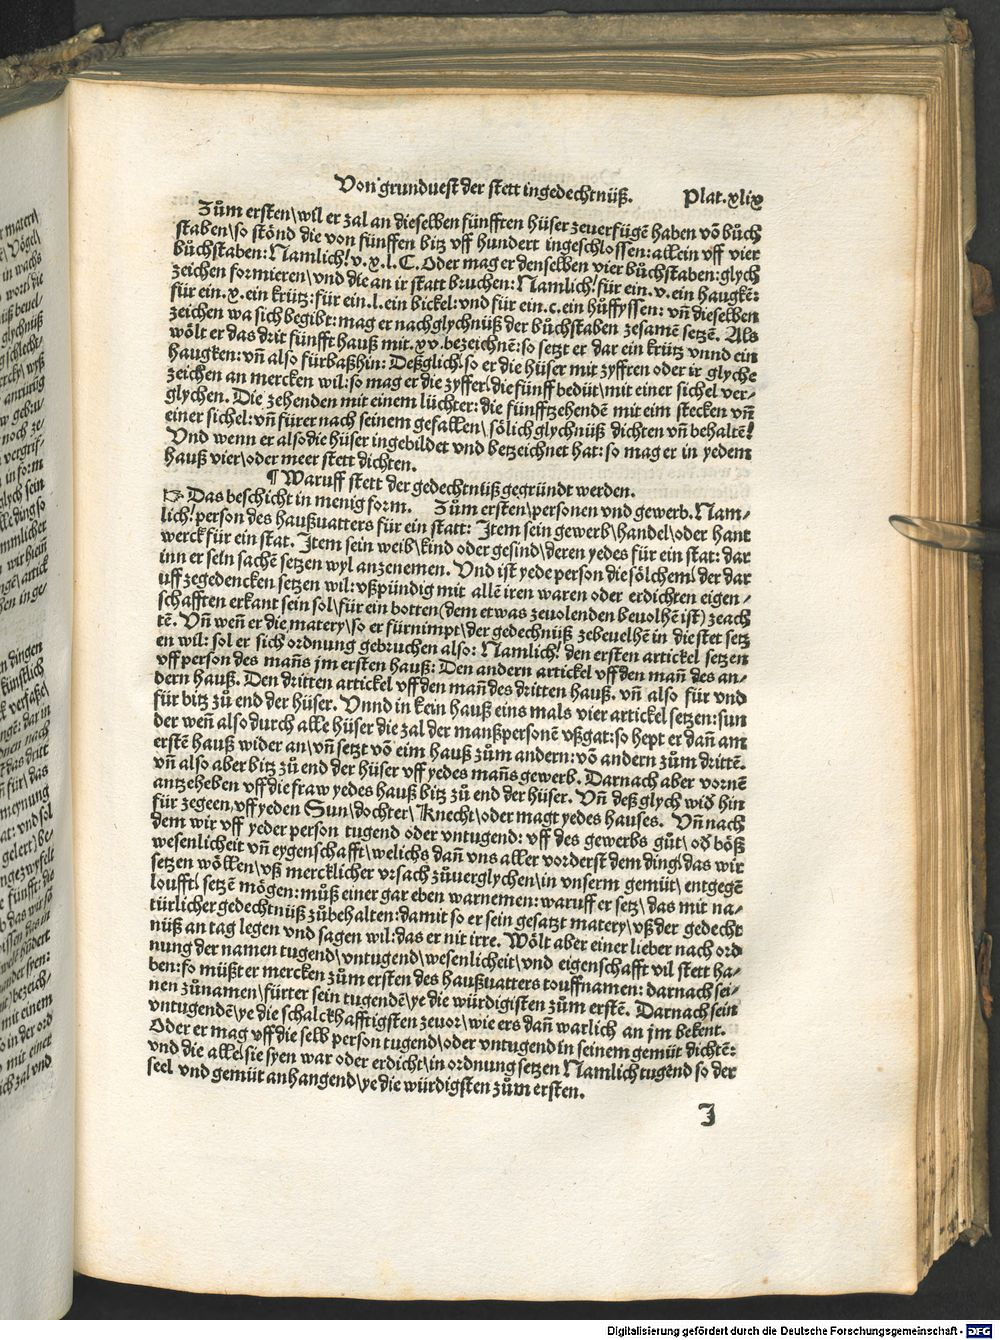 Von grunduest der stett in gedechtnüß. Plat. xlix
Zům ersten\ wil er zal an dieselben fünfften hüser zeuerfügē haben vō bůch
staben\ so stōnd die von fünffen bitz vff hundert ingeschlossen: allein vff vier
bůchstaben: Namlich! v. x. l. C. Oder mag er denselben vier bůchstaben: glych
zeichen formieren\ vnd die an ir statt bruchen: Namlich! für ein. v. ein haugkē:
für ein. x. ein krütz: für ein. l. ein bickel: vnd für ein. c. ein hůffyssen: vñ dieselben
zeichen wa sich begibt: mag er nach glychnüß der bůchstaben zesamē setzē. Als
wölt er das drit fünfft hauß mit. xv. bezeichnē: so setzt er dar ein krütz vnnd ein
haugken: vñ also fürbaßhin: Deßglich! so er die hüser mit zyffren oder ir glyche
zeichen an mercken wil: so mag er die zyffer\ die fünff bedüt\ mit einer sichel ver⸗
glychen. Die zehenden mit einem lüchter: die fünfftzehendē mit eim stecken vñ
einer sichel: vñ fürer nach seinem gefallen\ sölich glychnüß dichten vñ behaltē!
Vnd wenn er also die hüser ingebildet vnd betzeichnet hat: so mag er in yedem
hauß vier\ oder meer stett dichten.
¶ Waruff stett der gedechtnüß gegründt werden.
☞ Das beschicht in menig form. Zům ersten\ personen vnd gewerb. Nam⸗
lich! person des haußuatters für ein statt: Item sein gewerb\ handel\ oder hant
werck für ein stat. Item sein weib\ kind oder gesind\ deren yedes für ein stat: dar
inn er sein sachē setzen wyl anzenemen. Vnd ist yede person die sölchem\ der dar
uff zegedencken setzen wil: vßpündig mit allē iren waren oder erdichten eigen⸗
schafften erkant sein sol\ für ein botten (dem etwas zeuolenden beuolhē ist) zeach
tē. Vñ weñ er die matery\ so er fürnimpt\ der gedechnüß zebeuelhē in die stet setz
en wil: sol er sich ordnung gebruchen also: Namlich! den ersten artickel setzen
vff person des mañs jm ersten hauß: Den andern artickel vff den mañ des an⸗
dern hauß. Den dritten artickel vff den mañ des dritten hauß. vñ also für vnd
für bitz zů end der hüser. Vnnd in kein hauß eins mals vier artickel setzen: sun
der weñ also durch alle hüser die zal der manßpersonē vßgat: so hept er dañ am
erstē hauß wider an\ vñ setzt vō eim hauß zům andern: vō andern zům drittē.
vñ also aber bitz zů end der hüser vff yedes mañs gewerb. Darnach aber vornē
antzeheben vff die fraw yedes hauß bitz zů end der hüser. Vñ deß glych wid̄ hin
für zegeen\ vff yeden Sun\ dochter\ Knecht\ oder magt yedes hauses. Vñ nach
dem wir vff yeder person tugend oder vntugend: vff des gewerbs gůt\ od̄ böß
wesenlicheit vñ eygenschafft\ welichs dañ vns aller vorderst dem ding\ das wir
setzen wöllen\ vß mercklicher vrsach zůuerglychen\ in vnserm gemüt\ entgegē
loufft\ setzē mögen: můß einer gar eben warnemen: waruff er setz\ das mit na⸗
türlicher gedechtnüß zůbehalten: damit so er sein gesatzt matery\ vß der gedecht
nüß an tag legen vnd sagen wil: das er nit irre. Wölt aber einer lieber nach ord
nung der namen tugend\ vntugend\ wesenlicheit\ vnd eigenschafft vil stett ha⸗
ben: so müßt er mercken zům ersten des haußuatters touffnamen: darnach sei⸗
nen zůnamen\ fürter sein tugendē\ ye die würdigisten zům erstē. Darnach sein
vntugendē\ ye die schalckhafftigsten zeuor\ wie ers dañ warlich an jm bekent.
Oder er mag vff die selb person tugend\ oder vntugend in seinem gemüt dichtē:
vnd die alle\ sie syen war oder erdicht\ in ordnung setzen Namlich tugend so der
seel vnd gemüt anhangend\ ye die würdigsten zům ersten.
J
Digitalisierung gefördert durch die Deutsche Forschungsgemeinschaft - DFG